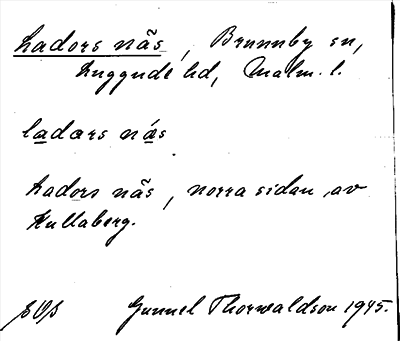 Ladors näs, Brunnby sn,
Luggude hd, Malm. l.
ladars näs
Ladors näs, norra sidan av
Kullaberg.
Gunnel Thorwaldson 1945.